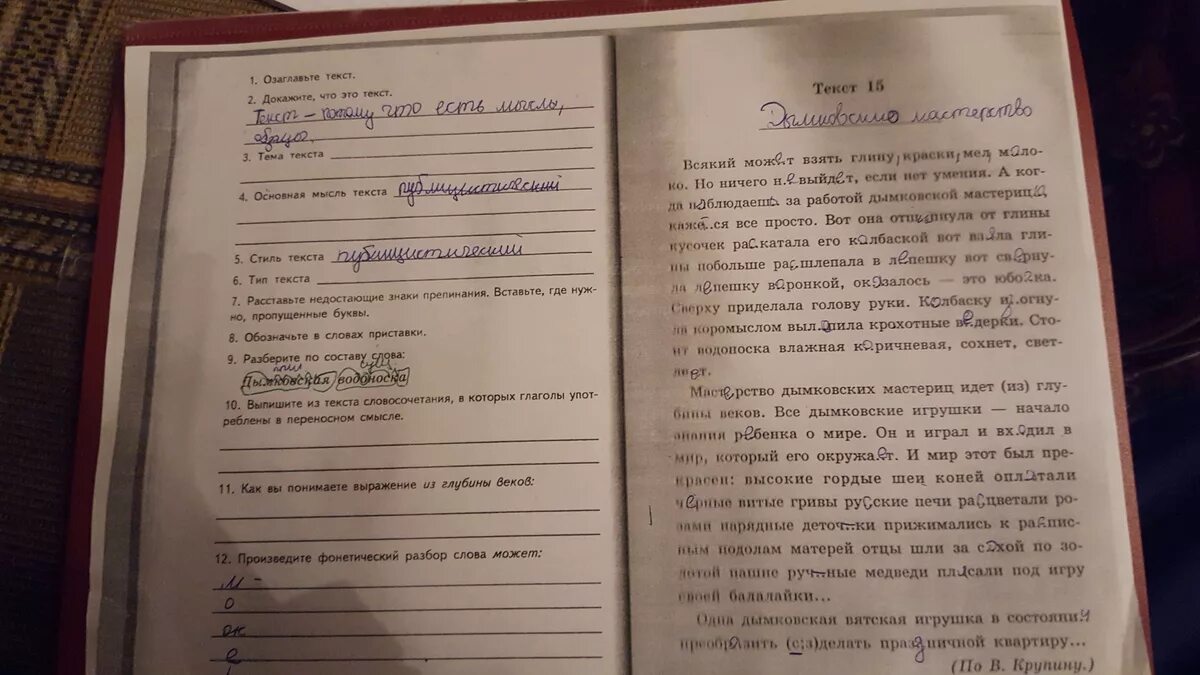 1. Озаглавьте текст.
2. Докажите, что это текст.
Текст – потому что есть мысль,
3. Тема текста
4. Основная мысль текста публицистический
5. Стиль текста публицистический
6. Тип текста
7. Расставьте недостающие знаки препинания. Вставьте, где нуж-
но, пропущенные буквы.
8. Обозначьте в словах приставки.
9. Разберите по составу слова:
Дымковская водоноска
10. Выпишите из текста словосочетания, в которых глаголы упот-
реблены в переносном смысле.
11. Как вы понимаете выражение из глубины веков:
12. Произведите фонетический разбор слова может:
м –
о
ж
е
Текст 15
Дымковское мастерство
Всякий может взять глину, краски, мел, моло-
ко. Но ничего не выйдет, если нет умения. А ког-
да наблюдаешь за работой дымковской мастерицы,
кажется все просто. Вот она отщипнула от глины
кусочек раскатала его колбаской вот взяла гли-
ны побольше расшлепала в лепешку вот сверну-
ла лепешку воронкой, оказалось — это юбочка.
Сверху приделала голову руки. Колбаску изогну-
ла коромыслом вылепила крохотные ведерки. Сто-
ит водоноска влажная коричневая, сохнет, свет-
леет.
Мастерство дымковских мастериц идет (из) глу-
бины веков. Все дымковские игрушки — начало
знания ребенка о мире. Он и играл и входил в
мир, который его окружает. И мир этот был пре-
красен: высокие гордые шеи коней оплетали
черные витые гривы русские печи расцветали ро-
зами нарядные деточки прижимались к распис-
ным подолам матерей отцы шли за сохой по зо-
лотой пашне ручные медведи плясали под игру
своей балалайки...
Одна дымковская вятская игрушка в состоянии
преобразить (с;з)делать праздничной квартиру...
(По В. Крупину.)